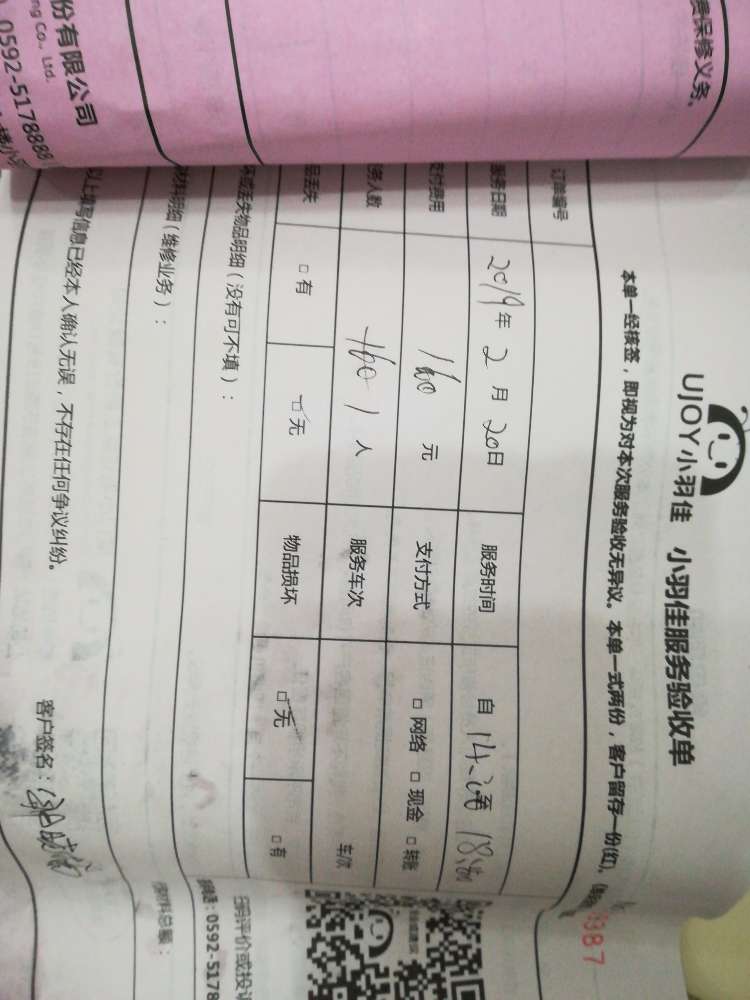 份有限公司
ng Co., Ltd.
0592-5178888
质保修义务。
UJOY 小羽佳 小羽佳服务验收单
本单一经核签，即视为对本次服务验收无异议。本单一式两份，客户留存一份(红)，
887
订单编号
服务日期 2019年 2 月 20日 服务时间 自 至
支付费用 160 元 支付方式 □ 网络 □ 现金 □ 转账
务人数 1 人 服务车次 车/次
品丢失 □ 有 □ 无 物品损坏 □ 无 □ 有
坏或丢失物品明细（没有可不填）：
材料明细（维修业务）：
以上填写信息已经本人确认无误，不存在任何争议纠纷。
客户签名：
扫码评价或投诉
0592-5178
材料总额：